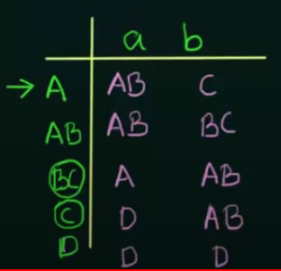 a b
→ A AB C
AB AB BC
BC A AB
C D AB
D D D